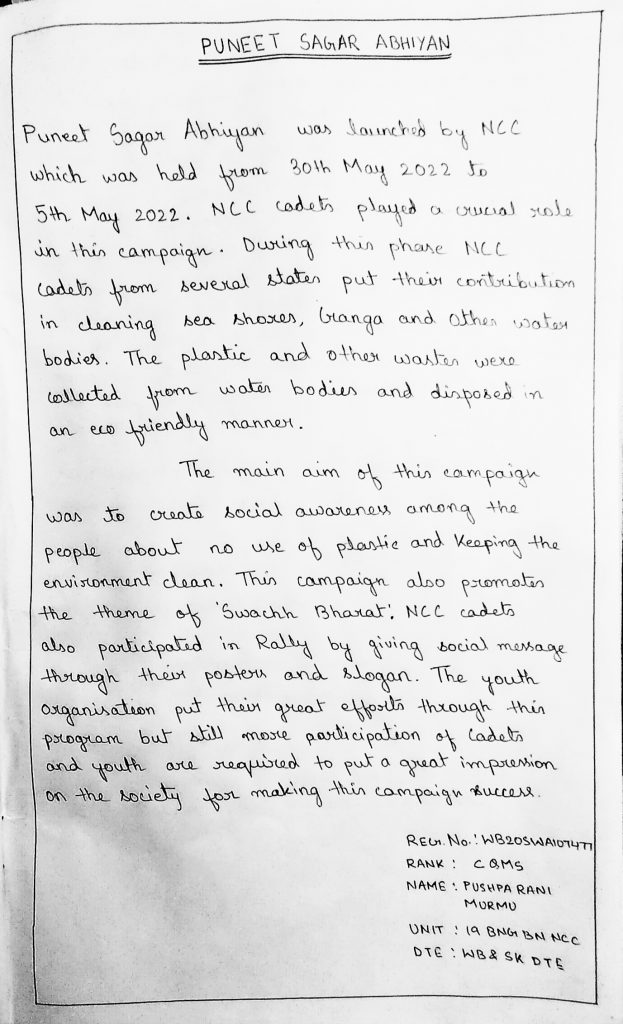 PUNEET SAGAR ABHIYAN
Puneet Sagar Abhiyan was launched by NCC
which was held from 30th May 2022 to
5th May 2022. NCC cadets played a crucial role
in this campaign. During this phase NCC
cadets from several states put their contribution
in cleaning sea shores, Ganga and other water
bodies. The plastic and other wastes were
collected from water bodies and disposed in
an eco friendly manner.
The main aim of this campaign
was to create social awareness among the
people about no use of plastic and keeping the
environment clean. This campaign also promotes
the theme of 'Swachh Bharat'. NCC cadets
also participated in Rally by giving social message
through their posters and slogan. The youth
organisation put their great efforts through this
program but still more participation of cadets
and youth are required to put a great impression
on the society for making this campaign success.
REG. No.: WB20SWA107477
RANK : CQMS
NAME : PUSHPA RANI
MURMU
UNIT : 19 BNG BN NCC
DTE : WB & SK DTE